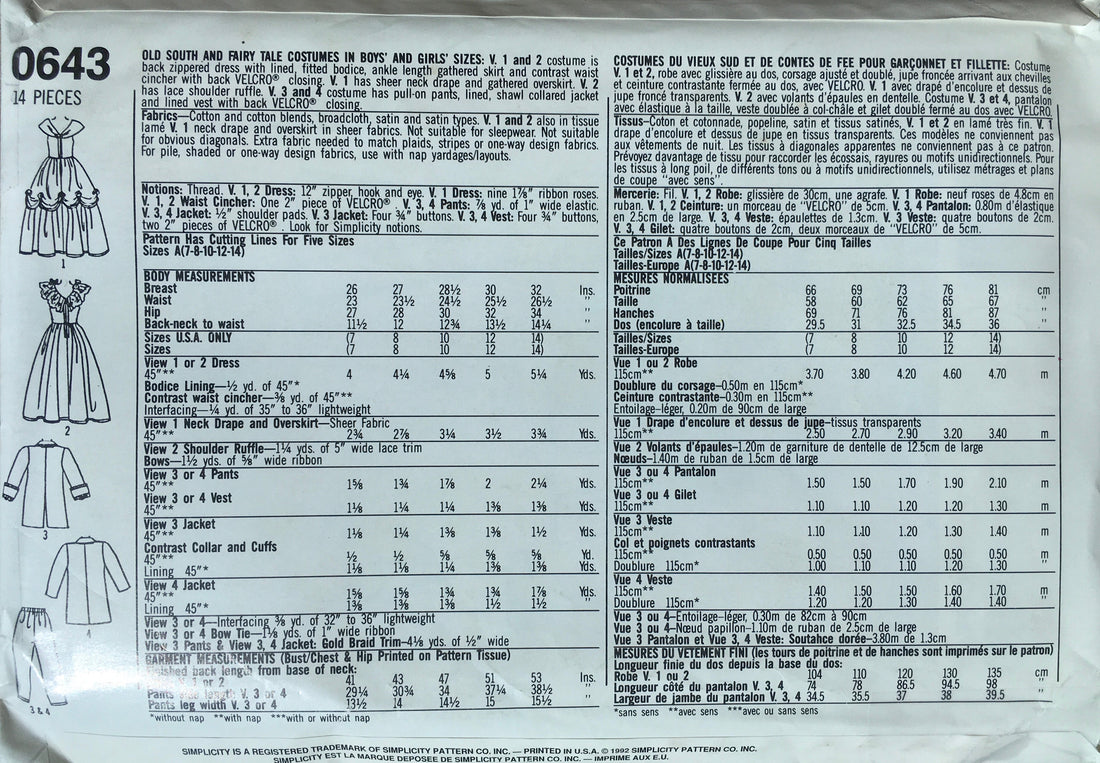 0643
14 PIECES
1
2
3
4
3 & 4
OLD SOUTH AND FAIRY TALE COSTUMES IN BOYS' AND GIRLS' SIZES: V. 1 and 2 costume is
back zippered dress with lined, fitted bodice, ankle length gathered skirt and contrast waist
cincher with back VELCRO® closing. V. 1 has sheer neck drape and gathered overskirt. V. 2
has lace shoulder ruffle. V. 3 and 4 costume has pull-on pants, lined, shawl collared jacket
and lined vest with back VELCRO® closing.
Fabrics—Cotton and cotton blends, broadcloth, satin and satin types. V. 1 and 2 also in tissue
lamé V. 1 neck drape and overskirt in sheer fabrics. Not suitable for sleepwear. Not suitable
for obvious diagonals. Extra fabric needed to match plaids, stripes or one-way design fabrics.
For pile, shaded or one-way design fabrics, use with nap yardages/layouts.
Notions: Thread. V. 1, 2 Dress: 12" zipper, hook and eye. V. 1 Dress: nine 1⅞" ribbon roses.
V. 1, 2 Waist Cincher: One 2" piece of VELCRO®. V. 3, 4 Pants: ⅞ yd. of 1" wide elastic.
V. 3, 4 Jacket: ½" shoulder pads. V. 3 Jacket: Four ¾" buttons. V. 3, 4 Vest: Four ¾" buttons,
two 2" pieces of VELCRO®. Look for Simplicity notions.
Pattern Has Cutting Lines For Five Sizes
Sizes A(7-8-10-12-14)
BODY MEASUREMENTS
Breast 26 27 28½ 30 32 Ins.
Waist 23 23½ 24½ 25½ 26½ "
Hip 27 28 30 32 34 "
Back-neck to waist 11½ 12 12¾ 13½ 14¼ "
Sizes U.S.A. ONLY (7 8 10 12 14)
Sizes (7 8 10 12 14)
View 1 or 2 Dress
45"** 4 4¼ 4⅝ 5 5¼ Yds.
Bodice Lining—½ yd. of 45"*
Contrast waist cincher—⅜ yd. of 45"**
Interfacing—¼ yd. of 35" to 36" lightweight
View 1 Neck Drape and Overskirt—Sheer Fabric
45"** 2¾ 2⅞ 3¼ 3½ 3¾ Yds.
View 2 Shoulder Ruffle—1¼ yds. of 5" wide lace trim
Bows—1½ yds. of ⅝" wide ribbon
View 3 or 4 Pants
45"** 1⅝ 1¾ 1⅞ 2 2¼ Yds.
View 3 or 4 Vest
45"** 1⅛ 1¼ 1¼ 1⅜ 1⅜ Yds.
View 3 Jacket
45"** 1⅛ 1¼ 1⅜ 1⅜ 1½ Yds.
Contrast Collar and Cuffs
45"** ½ ½ ⅝ ⅝ ⅝ Yd.
Lining 45"* 1⅛ 1⅛ 1¼ 1⅜ 1⅜ Yds.
View 4 Jacket
45"** 1½ 1⅝ 1¾ 1¾ 1⅞ Yds.
Lining 45"* 1⅜ 1⅜ 1⅜ 1½ 1½ "
View 3 or 4—Interfacing ⅜ yd. of 32" to 36" lightweight
View 3 or 4 Bow Tie—1⅛ yds. of 1" wide ribbon
View 3 Pants & View 3, 4 Jacket: Gold Braid Trim—4⅛ yds. of ½" wide
GARMENT MEASUREMENTS (Bust/Chest & Hip Printed on Pattern Tissue)
Finished back length from base of neck:
1 or 2 41 43 47 51 53 Ins.
Pants side length V. 3 or 4 29¼ 30¾ 34 37¼ 38½ "
Pants leg width V. 3 or 4 13½ 14 14½ 15 15½ "
*without nap **with nap ***with or without nap
COSTUMES DU VIEUX SUD ET DE CONTES DE FEE POUR GARÇONNET ET FILLETTE: Costume
V. 1 et 2, robe avec glissière au dos, corsage ajusté et doublé, jupe froncée arrivant aux chevilles
et ceinture contrastante fermée au dos, avec VELCRO. V. 1 avec drapé d'encolure et dessus de
jupe froncé transparents. V. 2 avec volants d'épaules en dentelle. Costume V. 3 et 4, pantalon
avec élastique à la taille, veste doublée à col-châle et gilet doublé fermé au dos avec VELCRO.
Tissus—Coton et cotonnade, popeline, satin et tissus satinés. V. 1 et 2 en lamé très fin. V. 1
drape d'encolure et dessus de jupe en tissus transparents. Ces modèles ne conviennent pas
aux vêtements de nuit. Les tissus à diagonales apparentes ne conviennent pas à ce patron.
Prévoyez davantage de tissu pour raccorder les écossais, rayures ou motifs unidirectionnels. Pour
les tissus à long poil, de différents tons ou à motifs unidirectionnels, utilisez métrages et plans
de coupe "avec sens".
Mercerie: Fil, V. 1, 2 Robe: glissière de 30cm, une agrafe. V. 1 Robe: neuf roses de 4.8cm en
ruban. V. 1, 2 Ceinture: un morceau de "VELCRO" de 5cm. V. 3, 4 Pantalon: 0.80m d'élastique
en 2.5cm de large. V. 3, 4 Veste: épaulettes de 1.3cm. V. 3 Veste: quatre boutons de 2cm.
V. 3, 4 Gilet: quatre boutons de 2cm, deux morceaux de "VELCRO" de 5cm.
Ce Patron A Des Lignes De Coupe Pour Cinq Tailles
Tailles/Sizes A(7-8-10-12-14)
Tailles-Europe A(7-8-10-12-14)
MESURES NORMALISEES
Poitrine 66 69 73 76 81 cm
Taille 58 60 62 65 67 "
Hanches 69 71 76 81 87 "
Dos (encolure à taille) 29.5 31 32.5 34.5 36 "
Tailles/Sizes (7 8 10 12 14)
Tailles-Europe (7 8 10 12 14)
Vue 1 ou 2 Robe
115cm** 3.70 3.80 4.20 4.60 4.70 m
Doublure du corsage—0.50m en 115cm*
Ceinture contrastante—0.30m en 115cm**
Entoilage-léger, 0.20m de 90cm de large
Vue 1 Drape d'encolure et dessus de jupe—tissus transparents
115cm** 2.50 2.70 2.90 3.20 3.40 m
Vue 2 Volants d'épaules—1.20m de garniture de dentelle de 12.5cm de large
Nœuds—1.40m de ruban de 1.5cm de large
Vue 3 ou 4 Pantalon
115cm** 1.50 1.50 1.70 1.90 2.10 m
Vue 3 ou 4 Gilet
115cm** 1.10 1.10 1.20 1.20 1.30 m
Vue 3 Veste
115cm** 1.10 1.10 1.20 1.30 1.40 m
Col et poignets contrastants
115cm** 0.50 0.50 0.50 0.50 0.50 m
Doublure 115cm* 1.00 1.10 1.10 1.20 1.30 "
Vue 4 Veste
115cm** 1.40 1.50 1.50 1.60 1.70 m
Doublure 115cm* 1.20 1.20 1.30 1.40 1.40 "
Vue 3 ou 4—Entoilage-léger, 0.30m de 82cm à 90cm
Vue 3 ou 4—Nœud papillon—1.10m de ruban de 2.5cm de large
Vue 3 Pantalon et Vue 3, 4 Veste: Soutache dorée—3.80m de 1.3cm
MESURES DU VETEMENT FINI (les tours de poitrine et de hanches sont imprimés sur le patron)
Longueur finie du dos depuis la base du dos:
Robe V. 1 ou 2 104 110 120 130 135 cm
Longueur côté du pantalon V. 3, 4 74 78 86.5 94.5 98 "
Largeur de jambe du pantalon V. 3, 4 34.5 35.5 37 38 39.5 "
*sans sens **avec sens ***avec ou sans sens
SIMPLICITY IS A REGISTERED TRADEMARK OF SIMPLICITY PATTERN CO. INC. — PRINTED IN U.S.A. © 1992 SIMPLICITY PATTERN CO. INC.
SIMPLICITY EST LA MARQUE DEPOSEE DE SIMPLICITY PATTERN CO. INC. — IMPRIME AUX E.U.